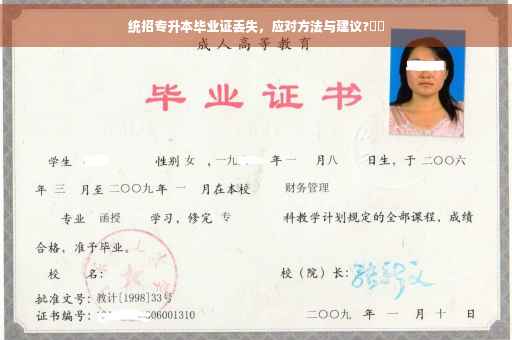 统招专升本毕业证丢失，应对方法与建议?
成人高等教育
毕业证书
学生 性别 女 ，一九 年 一 月 八 日生，于 二〇〇六
年 三 月至 二〇〇九 年 一 月在本校 财务管理
专业 函授 学习，修完 专 科教学计划规定的全部课程，成绩
合格，准予毕业。
校 名： 校（院）长：
批准文号：教计[1998]33号
证书编号： 06001310 二〇〇九 年 一 月 十 日